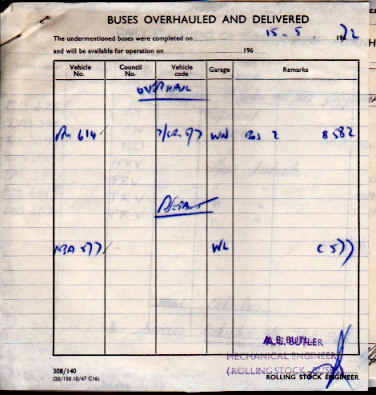 BUSES OVERHAULED AND DELIVERED
The undermentioned buses were completed on 15.5. 1972
and will be available for operation on 196
Vehicle No. Council No. Vehicle code Garage Remarks
OVERHAUL
RM 614 7/5RM5/7 WN BOS 2 B582
WL C577
A. E. BUTLER
MECHANICAL ENGINEER
(ROLLING STOCK
ROLLING STOCK ENGINEER
308/140
(20/150 10/67 C16)